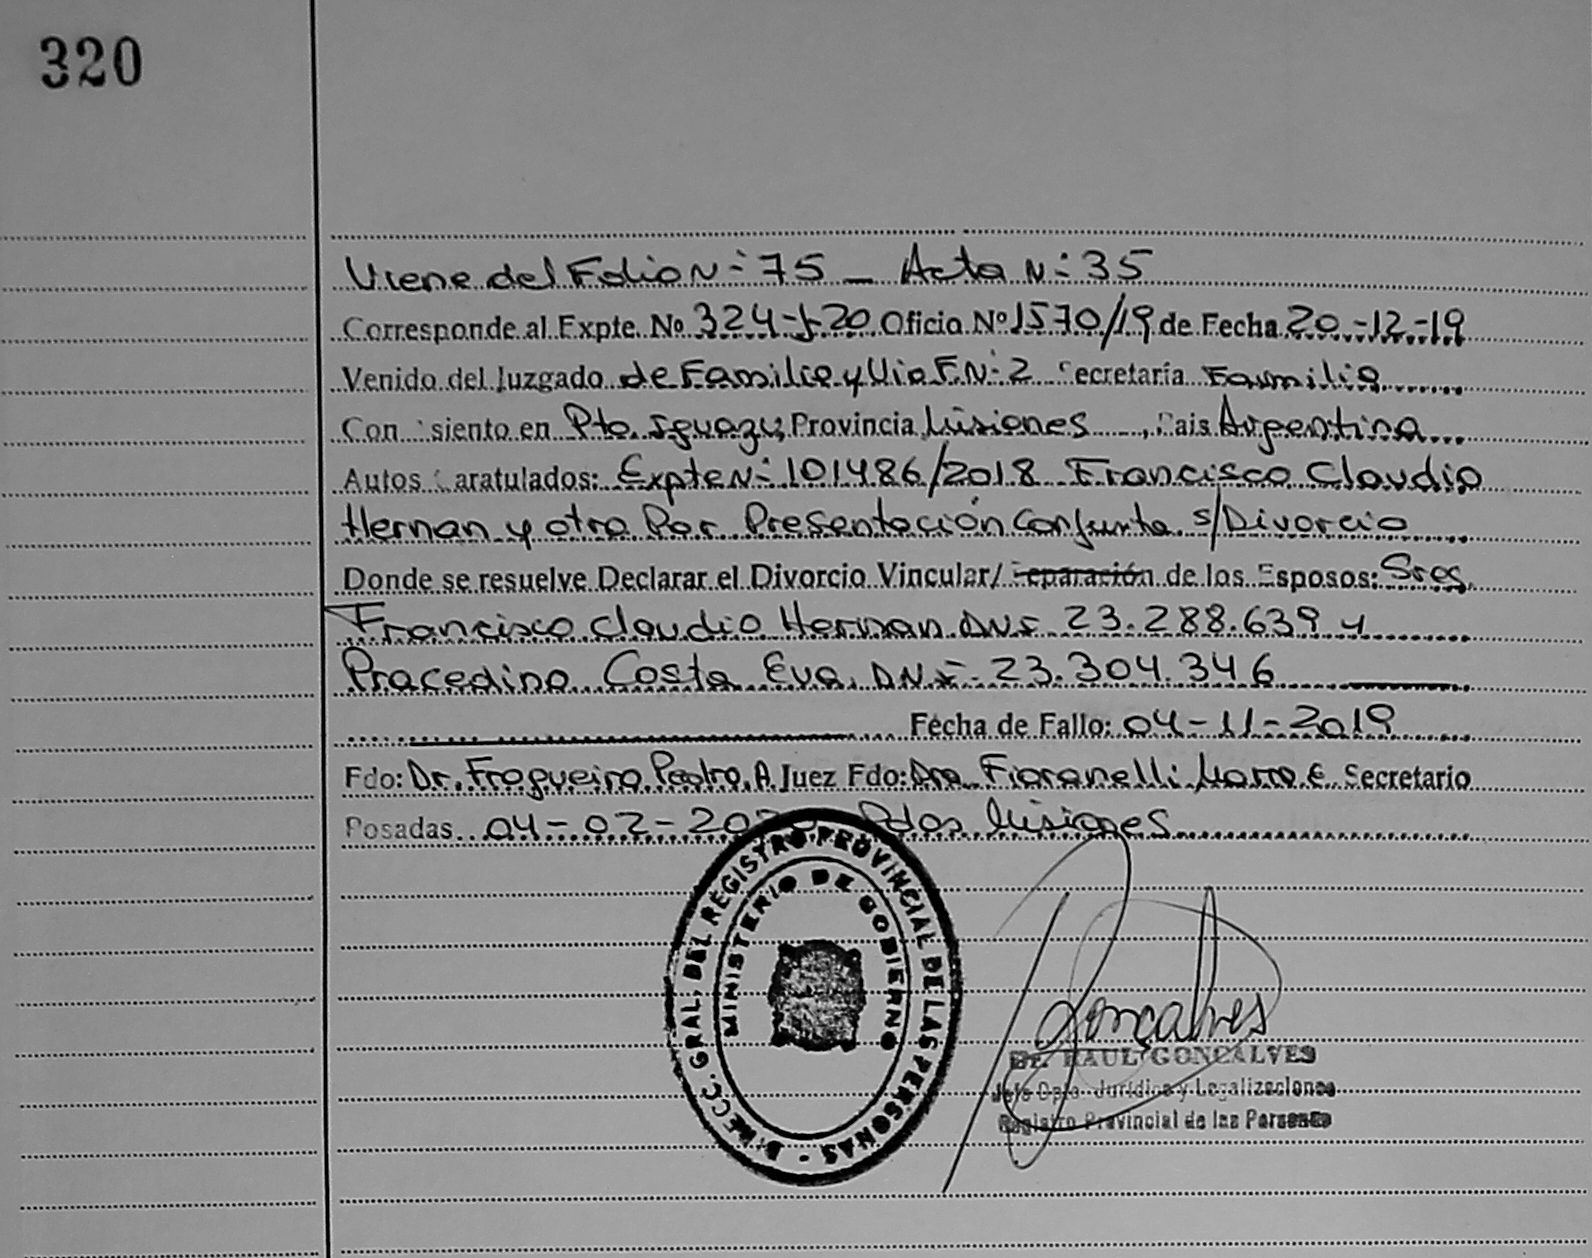 320
Viene del Folio N-: 75 - Acta N-: 35
Corresponde al Expte. Nº 324-J-20 Oficio Nº 1570/19 de Fecha 20-12-19
Venido del Juzgado de Familia y Vio F. N-: 2 Secretaría Familia
Con siento en Pto. Iguazu Provincia Misiones, Pais Argentina
Autos Caratulados: Expte N-: 101486/2018 Francisco Claudio
Hernan y otra Por Presentación Conjunta s/Divorcio
Donde se resuelve Declarar el Divorcio Vincular/ Separación de los Esposos: Sres.
Francisco Claudio Hernan DNI 23.288.639 y
Pracedino Costa Eva DNI- 23.304.346
Fecha de Fallo: 04-11-2019
Fdo: Dr. Fragueiro Pedro A. Juez Fdo: Dra. Fioranelli E. Secretario
Posadas 04-02-2020 Pdas Misiones
DIRECC. GRAL. DEL REGISTRO PROVINCIAL DE LAS PERSONAS -
MINISTERIO DE GOBIERNO
Gonçalves
Dr. RAUL GONCALVES
Jefe Dpto. Jurídico y Legalizaciones
Registro Provincial de las Personas